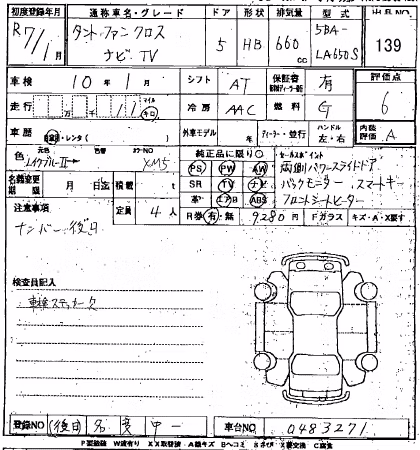 初度登録年月 通称車名・グレード ドア 形状 排気量 型式 出品NO
R7/1月 タント ファンクロス ナビ TV 5 HB 660cc 5BA-LA650S 139
車検 10年1月 シフト AT 保証書 有 評価点
走行 万 千 11 マイル キロ 冷房 AAC 燃料 G 6
車歴 自家・レンタ( ) 外車モデル ディーラー・並行 ハンドル 左・右 内装評価 A
色 元色 色替 カラーNO XM5 純正品に限り○ セールスポイント
PS PW AW 両側パワースライドドア
名義変更期限 月 日迄 積載 t SR TV ナビ バックモニター スマートキー
革 エアB ABS フロントシートヒーター
注意事項 定員 4人 R券 有・無 9280円 Fガラス キズ・A・X要す
ナンバー後日
検査員記入
車検ステッカー欠
登録NO (後日) 車台NO 0483271